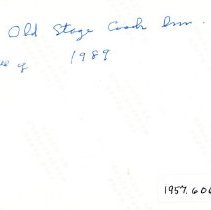 Old Stage Coach Inn.
1989
1957.606